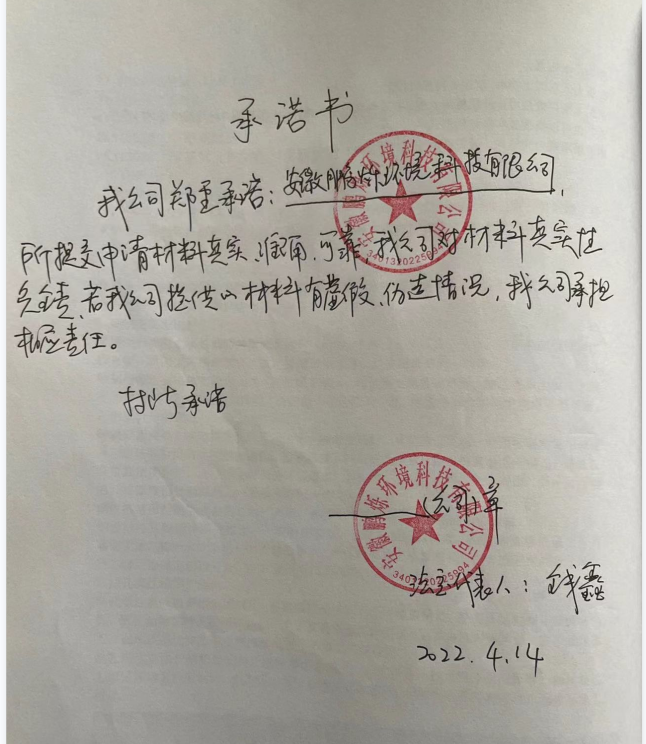 承诺书
我公司郑重承诺：安徽鹏烁环境科技有限公司，
所提交申请材料真实、准确、可靠，我公司对材料真实性
负全责，若我公司提供的材料有虚假、伪造情况，我公司承担
相应责任。
特此承诺
安徽鹏烁环境科技有限公司
（公司）章
安徽鹏烁环境科技有限公司
法定代表人：钱鑫
2022.4.14